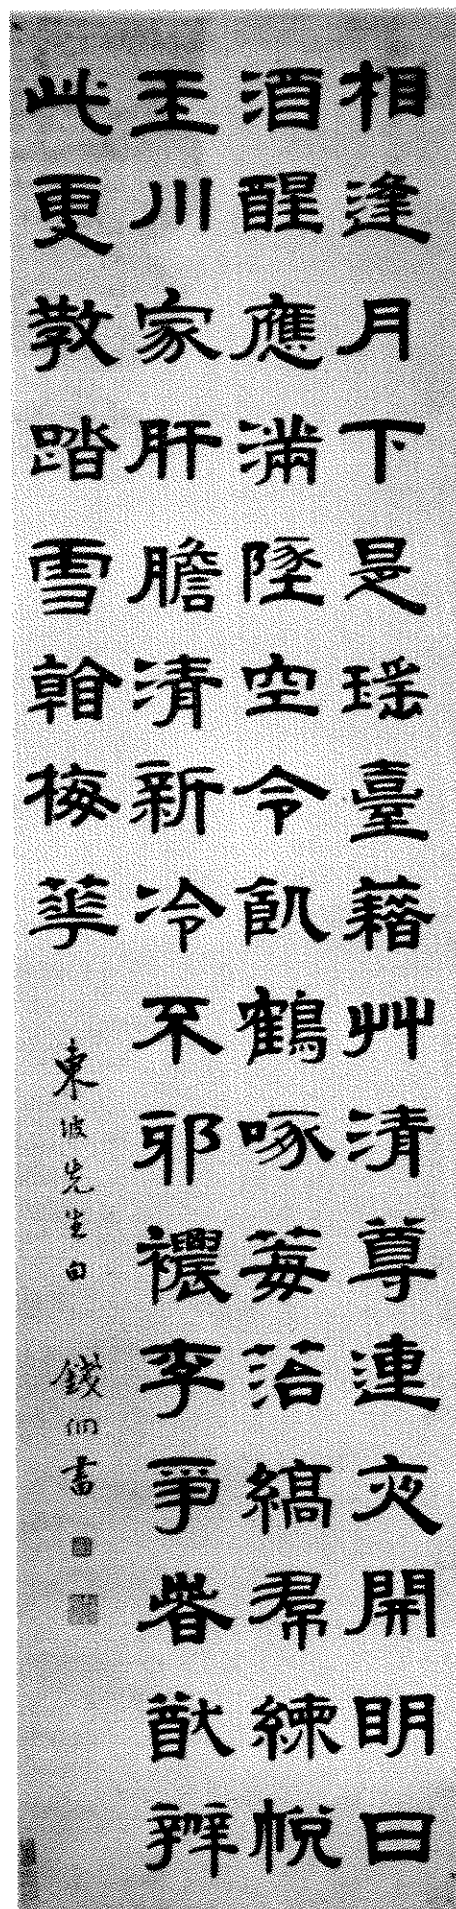 相逢月下是瑶臺藉艸清尊連夜開明日
酒醒應滿墬空令飢鶴啄莓菭縞帬練帨
玉川家肝膽清新冷不邪襛李爭萅猷辦
此更教踏雪看梅華
東坡先生句 錢泳書